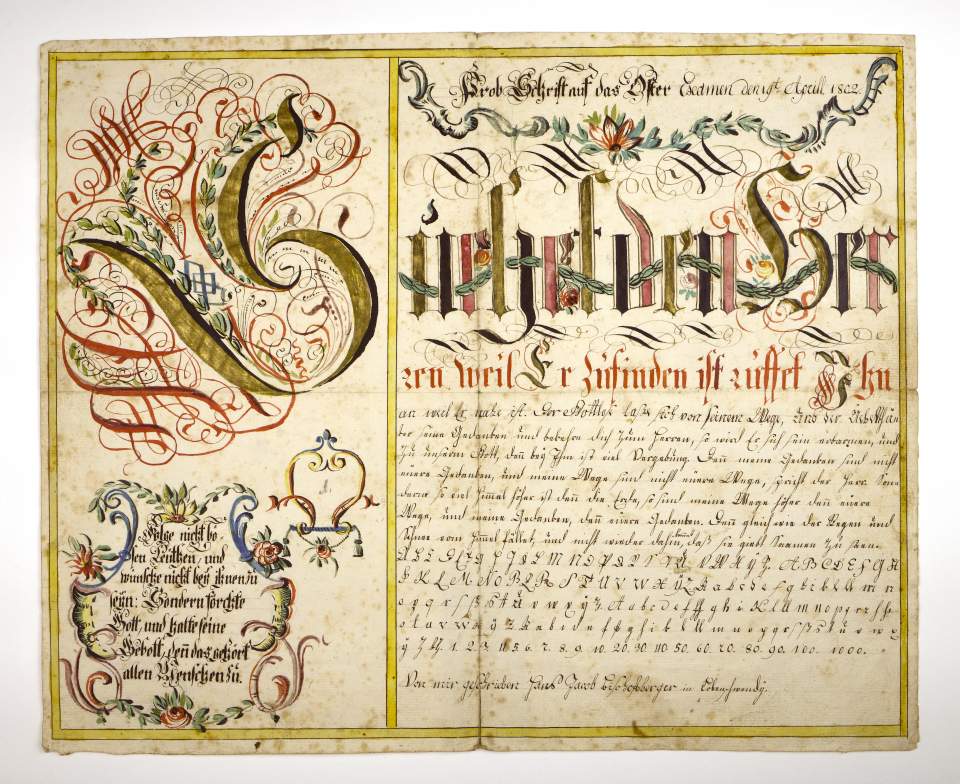 Prob Schrift auf das Oster Examen den 19t Aprill 1802.
S
uchet den Her
ren weil Er Zufinden ist rüffet Ihn
an weil Er nahe ist. Der Gottlose lasse sich von seinem Wege, und der Übelthäü
ter seine Gedanken und bekehre sich zum Herren, so wird Er sich sein erbarmen, und
zu unserm Gott, deñ bey Ihm ist viel Vergebung. Deñ meine Gedanken sind nicht
euere Gedanken, und meine Wege sind nicht euere Wege, spricht der Herr. Son
dern so viel himel höher ist deñ die Erde, so sind meine Wege höher deñ euere
Wege, und meine Gedanken, deñ euere Gedanken. Deñ gleich wie der Regen und
Schnee vom himel fallet, und nicht wieder dahin, daß sie giebt Saamen zu
1. 2. 3. 4. 5. 6. 7. 8. 9. 10. 20. 30. 40. 50. 60. 70. 80. 90. 100. 1000.
Von mir geschrieben Hans Jacob Bischofberger in
Folge nicht bö
sen Leüthen, und
wünsche nicht bey ihnen zu
seyn: Sondern förchte
Gott, und halte seine
Gebott, deñ das gehört
allen Menschen zu.